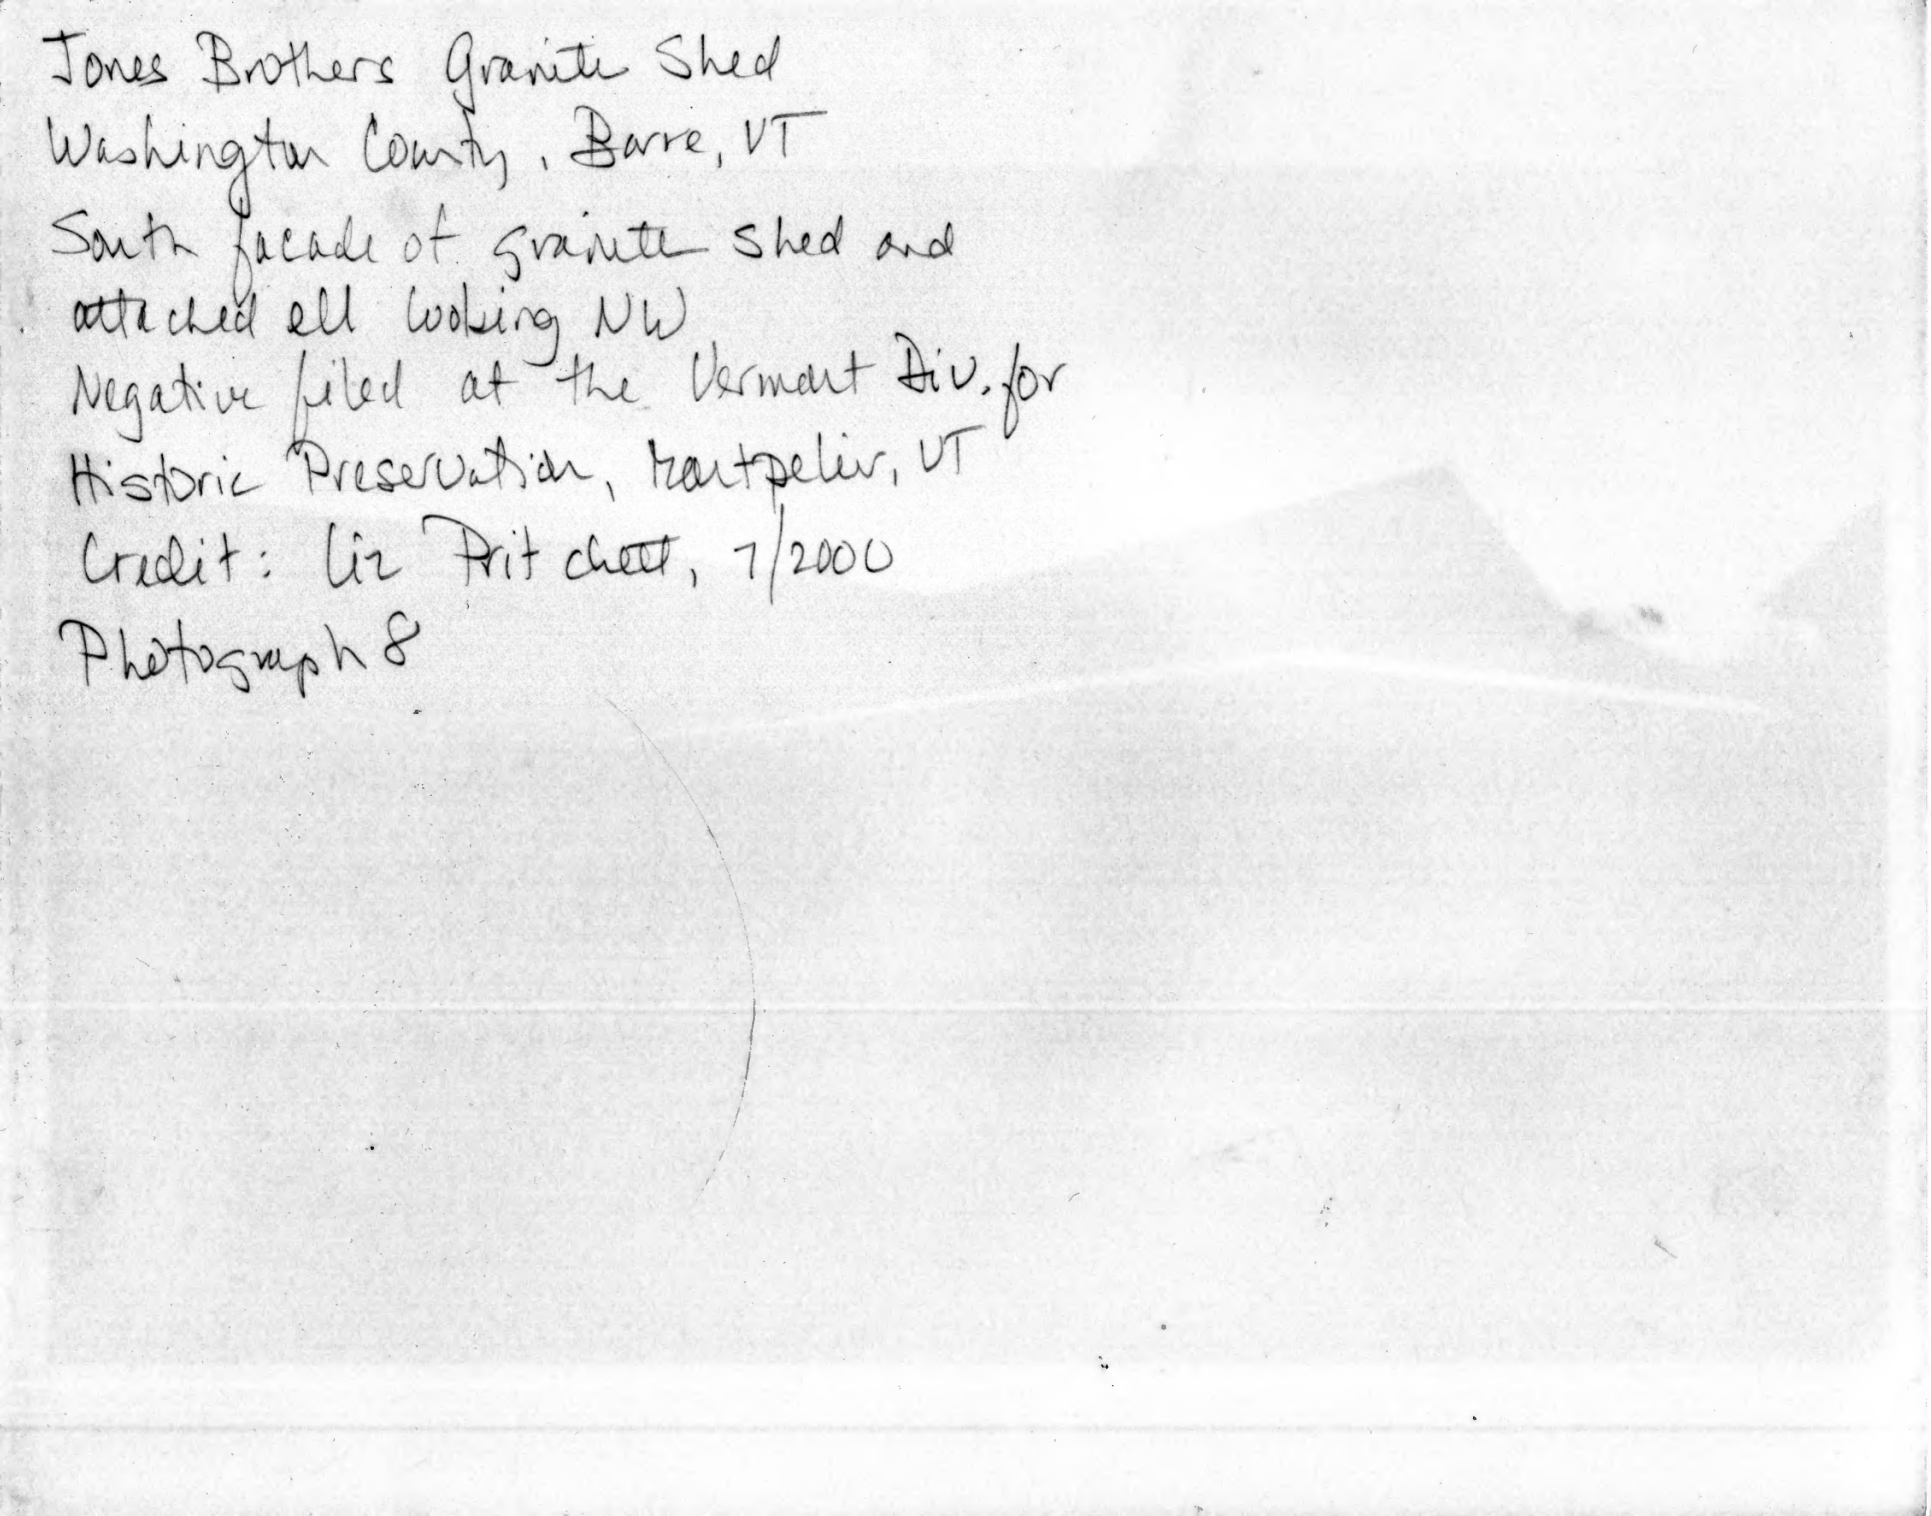 Jones Brothers Granite Shed
Washington County, Barre, VT
South facade of granite shed and
attached ell looking NW
Negative filed at the Vermont Div. for
Historic Preservation, Montpelier, VT
Credit: Liz Pritchett, 7/2000
Photograph 8